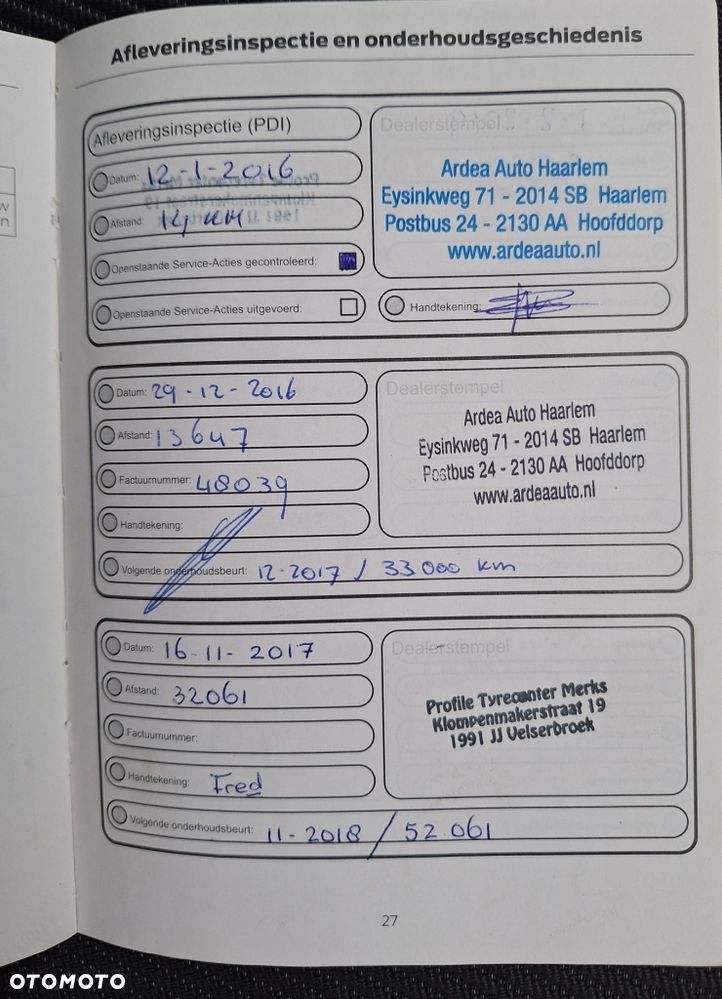 Afleveringsinspectie en onderhoudsgeschiedenis
Afleveringsinspectie (PDI)
Datum: 12-1-2016
Afstand: 14 KM
Openstaande Service-Acties gecontroleerd:
Openstaande Service-Acties uitgevoerd:
Dealerstempel
Ardea Auto Haarlem
Eysinkweg 71 - 2014 SB Haarlem
Postbus 24 - 2130 AA Hoofddorp
www.ardeaauto.nl
Handtekening:
Datum: 29-12-2016
Afstand: 13647
Factuurnummer: 48039
Handtekening:
Volgende onderhoudsbeurt: 12-2017 / 33000 km
Dealerstempel
Ardea Auto Haarlem
Eysinkweg 71 - 2014 SB Haarlem
Postbus 24 - 2130 AA Hoofddorp
www.ardeaauto.nl
Datum: 16-11-2017
Afstand: 32061
Factuurnummer:
Handtekening: Fred
Volgende onderhoudsbeurt: 11-2018 / 52.061
Dealerstempel
Profile Tyrecenter Merks
Klompenmakerstraat 19
1991 JJ Velserbroek
27
OTOMOTO